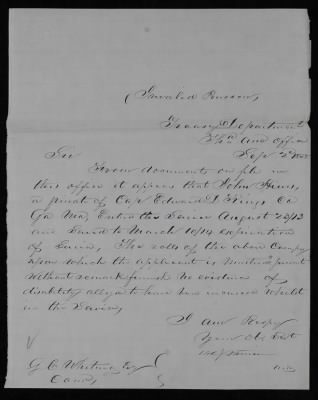 (Invalid Pension,
Treasury Department
3d Aud Office
Sep 2
Sir
From documents on file in
this office it appears that John
a private of Cap Edward
Ga Entered the Service August 22/13
and Served to March 10/14 expiration
of Service, The rolls of the above Company
upon which the applicant is
without remark furnish no evidence of
disability alleged to have been incurred whilst
in the Service
I am Respy
Your Obt Svt
G. C. Whiting Esq
Com